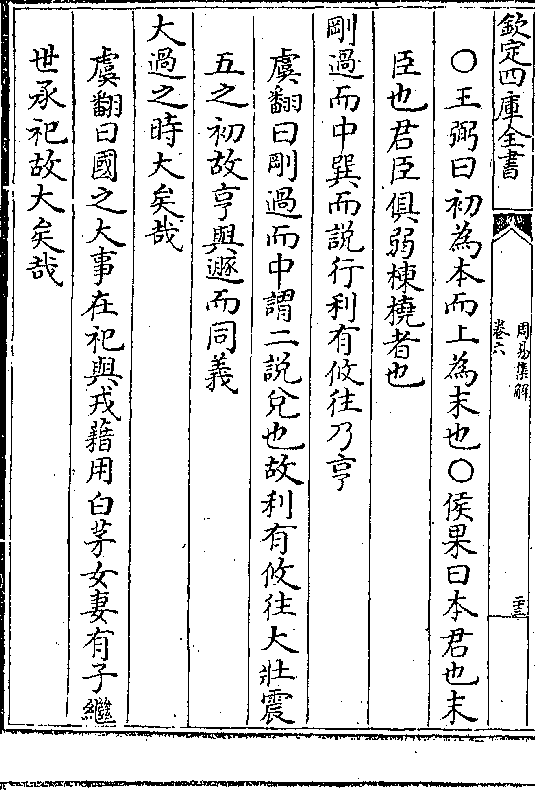 欽定四庫全書
周易集解
卷六
二三
○王弼曰初為本而上為末也○侯果曰本君也末
臣也君臣俱弱棟橈者也
剛過而中巽而說行利有攸往乃亨
虞翻曰剛過而中謂二說兌也故利有攸往大壯震
五之初故亨與遯而同義
大過之時大矣哉
虞翻曰國之大事在祀與戎藉用白茅女妻有子繼
世承祀故大矣哉